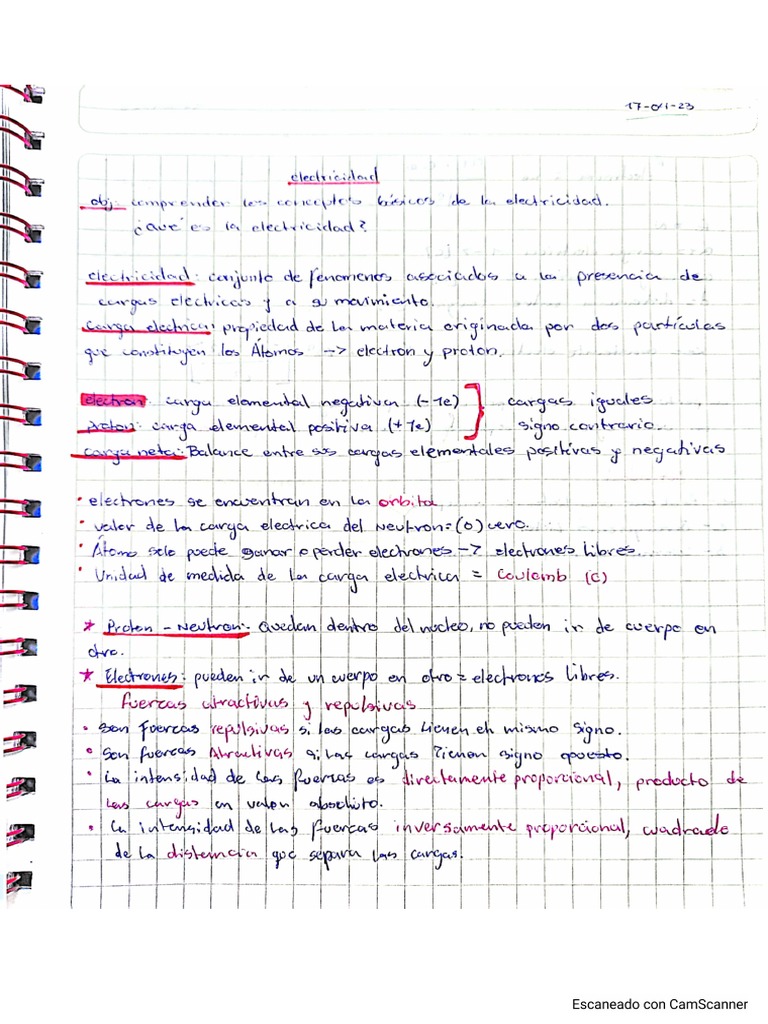 17-04-23
electricidad
obj: comprender los conceptos básicos de la electricidad.
¿Qué es la electricidad?
electricidad: conjunto de fenomenos asociados a la presencia de
cargas electricas y a su movimiento.
Carga electrica: propiedad de la materia originada por dos partículas
que constituyen los Átomos -> electron y proton.
electron: carga elemental negativa (-1e)
proton: carga elemental positiva (+1e)
cargas iguales
signo contrario.
carga neta: Balance entre sus cargas elementales positivas y negativas
• electrones se encuentran en la orbita
• valor de la carga electrica del Neutron = (0) cero.
• Átomo solo puede ganar o perder electrones -> electrones libres.
• Unidad de medida de la carga electrica = Coulomb (C)
* Proton - Neutron: Quedan dentro del nucleo, no pueden ir de cuerpo en
otro.
* Electrones: pueden ir de un cuerpo en otro = electrones libres.
Fuerzas atractivas y repulsivas
• Son fuerzas repulsivas si las cargas tienen el mismo signo.
• Son fuerzas Atractivas si las cargas tienen signo opuesto.
• La intensidad de las fuerzas es directamente proporcional, producto de
las cargas en valor absoluto.
• La intensidad de las fuerzas inversamente proporcional, cuadrado
de la distancia que separa las cargas.
Escaneado con CamScanner